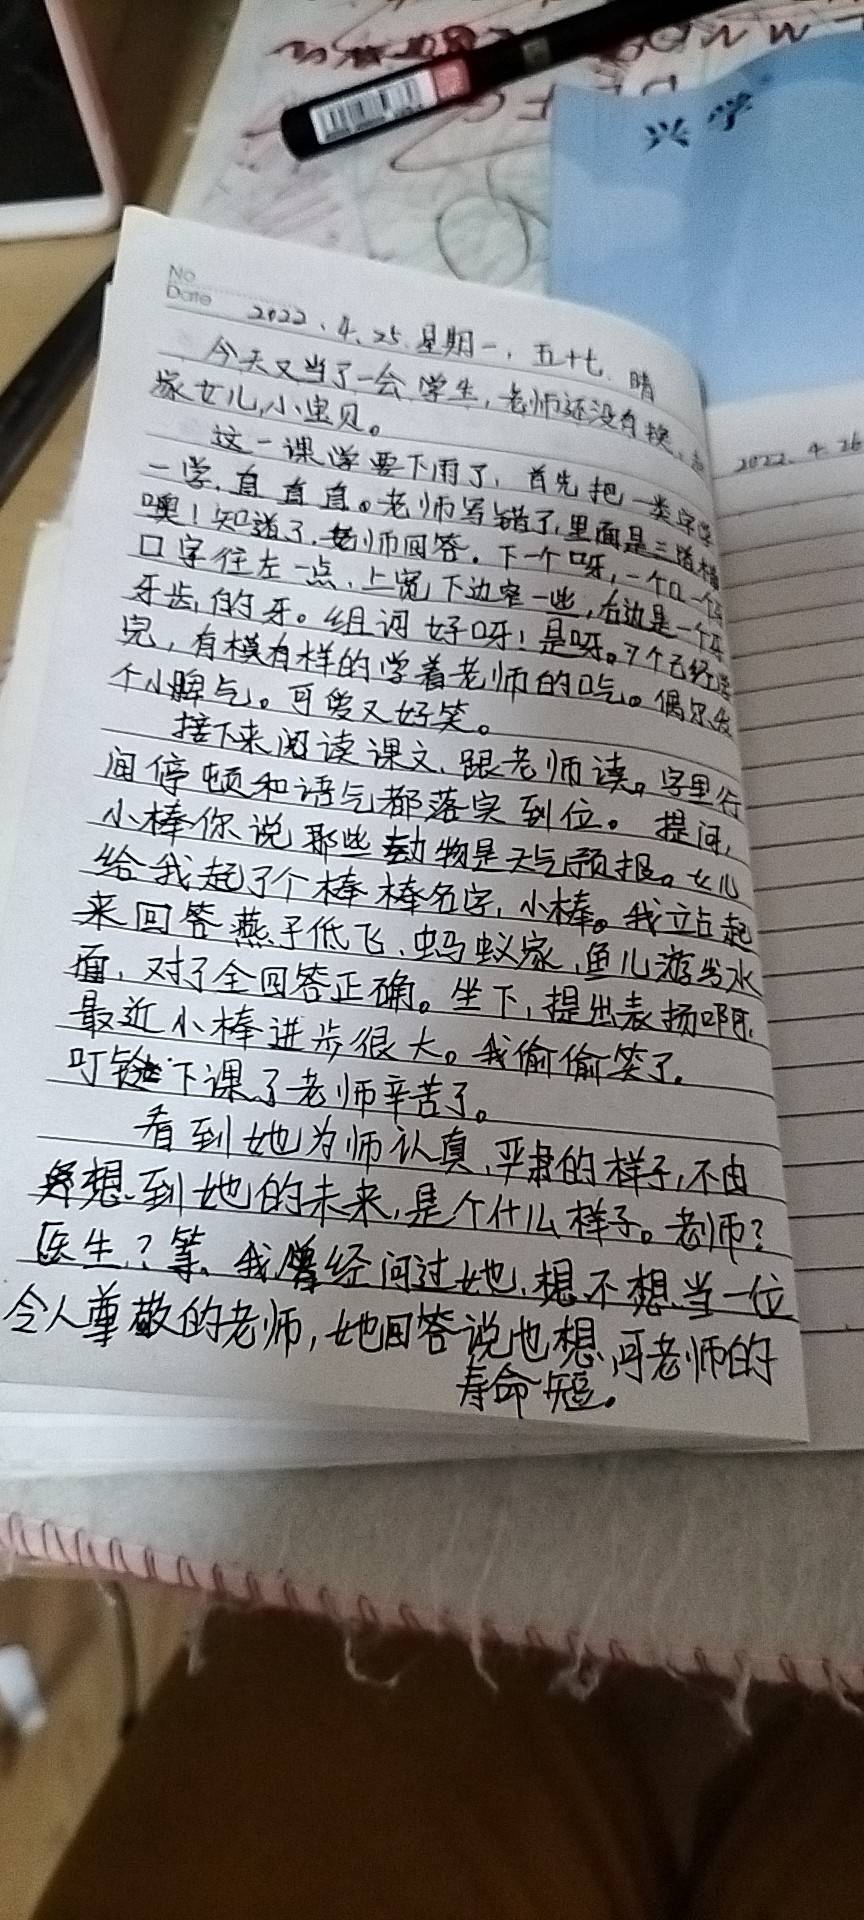 兴学
No
Date
2022、4、25 星期一、五十七、晴
今天又当了一会学生,老师还没有换,
家女儿,小宝贝。
这一课学要下雨了,首先把一类字学
一学,直直直。老师写错了,里面是三道横
噢!知道了,老师回答。下一个呀,一个口一个牙
口字往左一点、上宽下边窄一些,右边是一个牙
牙齿的牙。组词好呀!是呀。7个已经学
完,有模有样的学着老师的口气。偶尔发
个小脾气。可爱又好笑。
接下来阅读课文,跟老师读。字里行
间停顿和语气都落实到位。提问,
小棒你说那些动物是天气预报。女儿
给我起了个棒棒名字,小棒。我立占起
来回答燕子低飞、蚂蚁家、鱼儿游出水
面,对了全回答正确。坐下,提出表扬啊,
最近小棒进步很大。我偷偷笑了。
叮铃下课了老师辛苦了。
看到她为师认真、严肃的样子,不由
想到她的未来,是个什么样子。老师?
医生?等、我曾经问过她,想不想当一位
令人尊敬的老师,她回答说也想,可老师的
寿命短。
2022、4、26